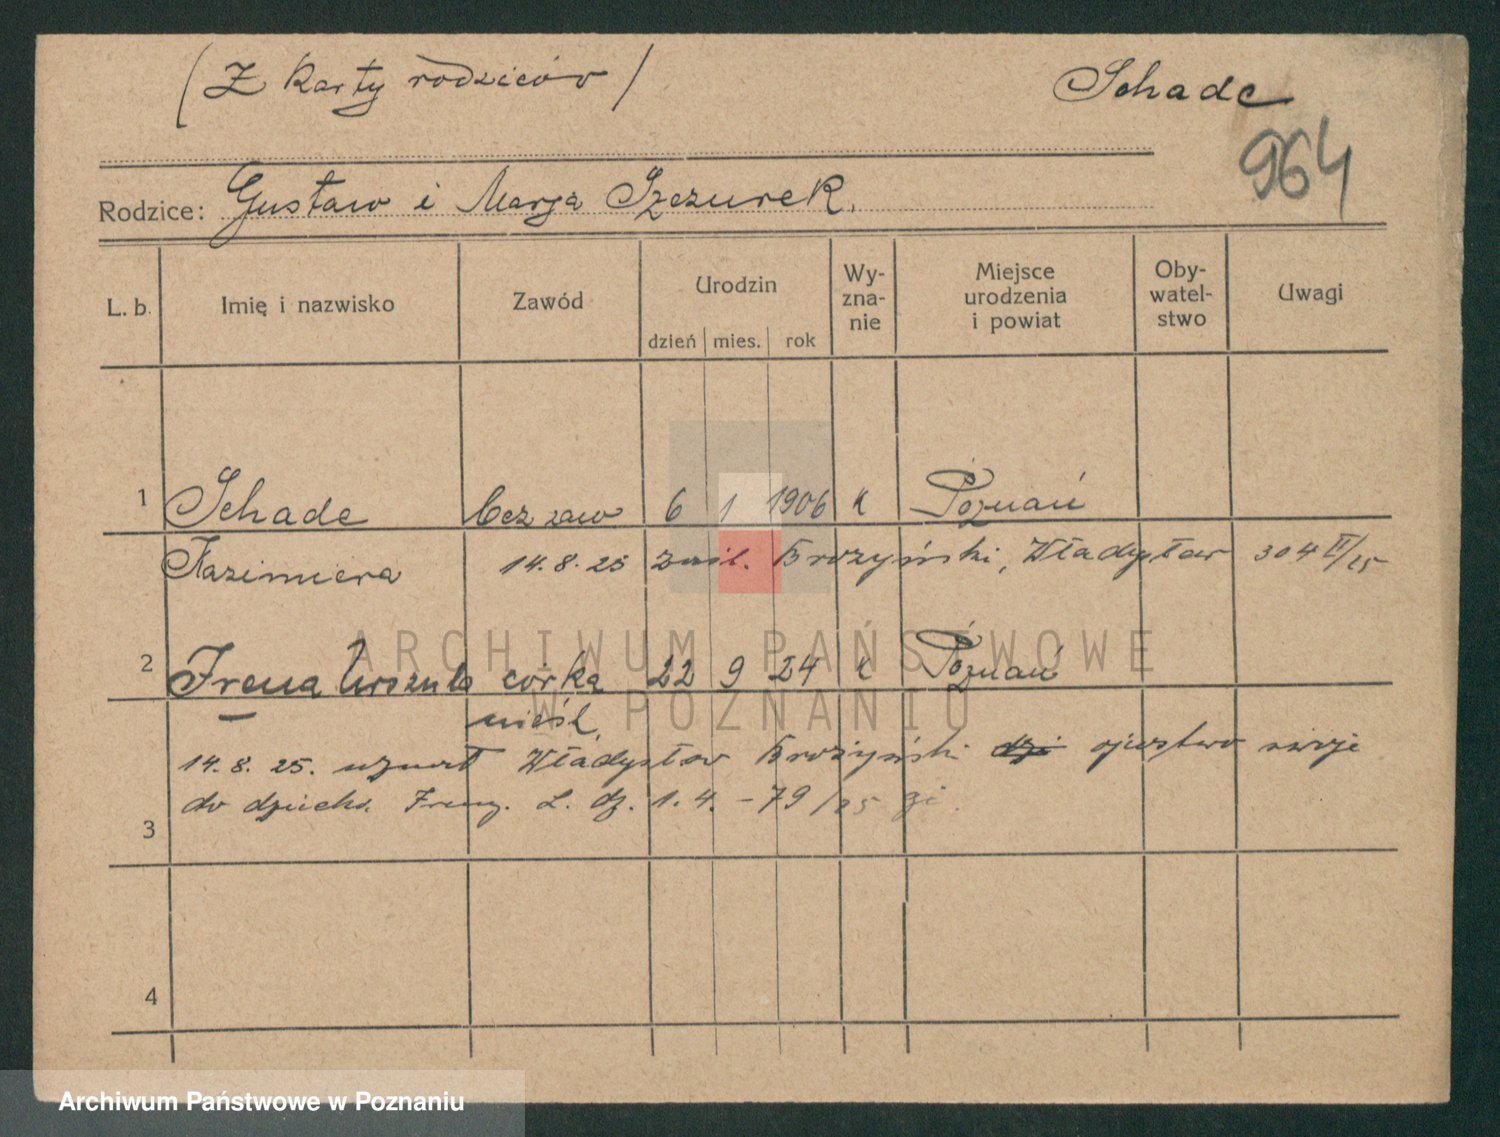 (Z karty rodziców) Schade
964
Rodzice: Gustaw i Marja Szczurek.
L. b. Imię i nazwisko Zawód Urodzin dzień mies. rok Wy-zna-nie Miejsce urodzenia i powiat Oby-watel-stwo Uwagi
1 Schade bez zaw 6 1 1906 k Poznań
Kazimiera 14.8.25 zaśl. Brożyński, Władysław 304 II/25
2 Irena Urszula córka 22 9 24 k Poznań
nieśl.
14.8.25. uznał Władysław Brożyński ojcostwo swoje
do dziecka Ireny. L. dz. 1.4.-79/25
3
4
ARCHIWUM PAŃSTWOWE
W POZNANIU
Archiwum Państwowe w Poznaniu